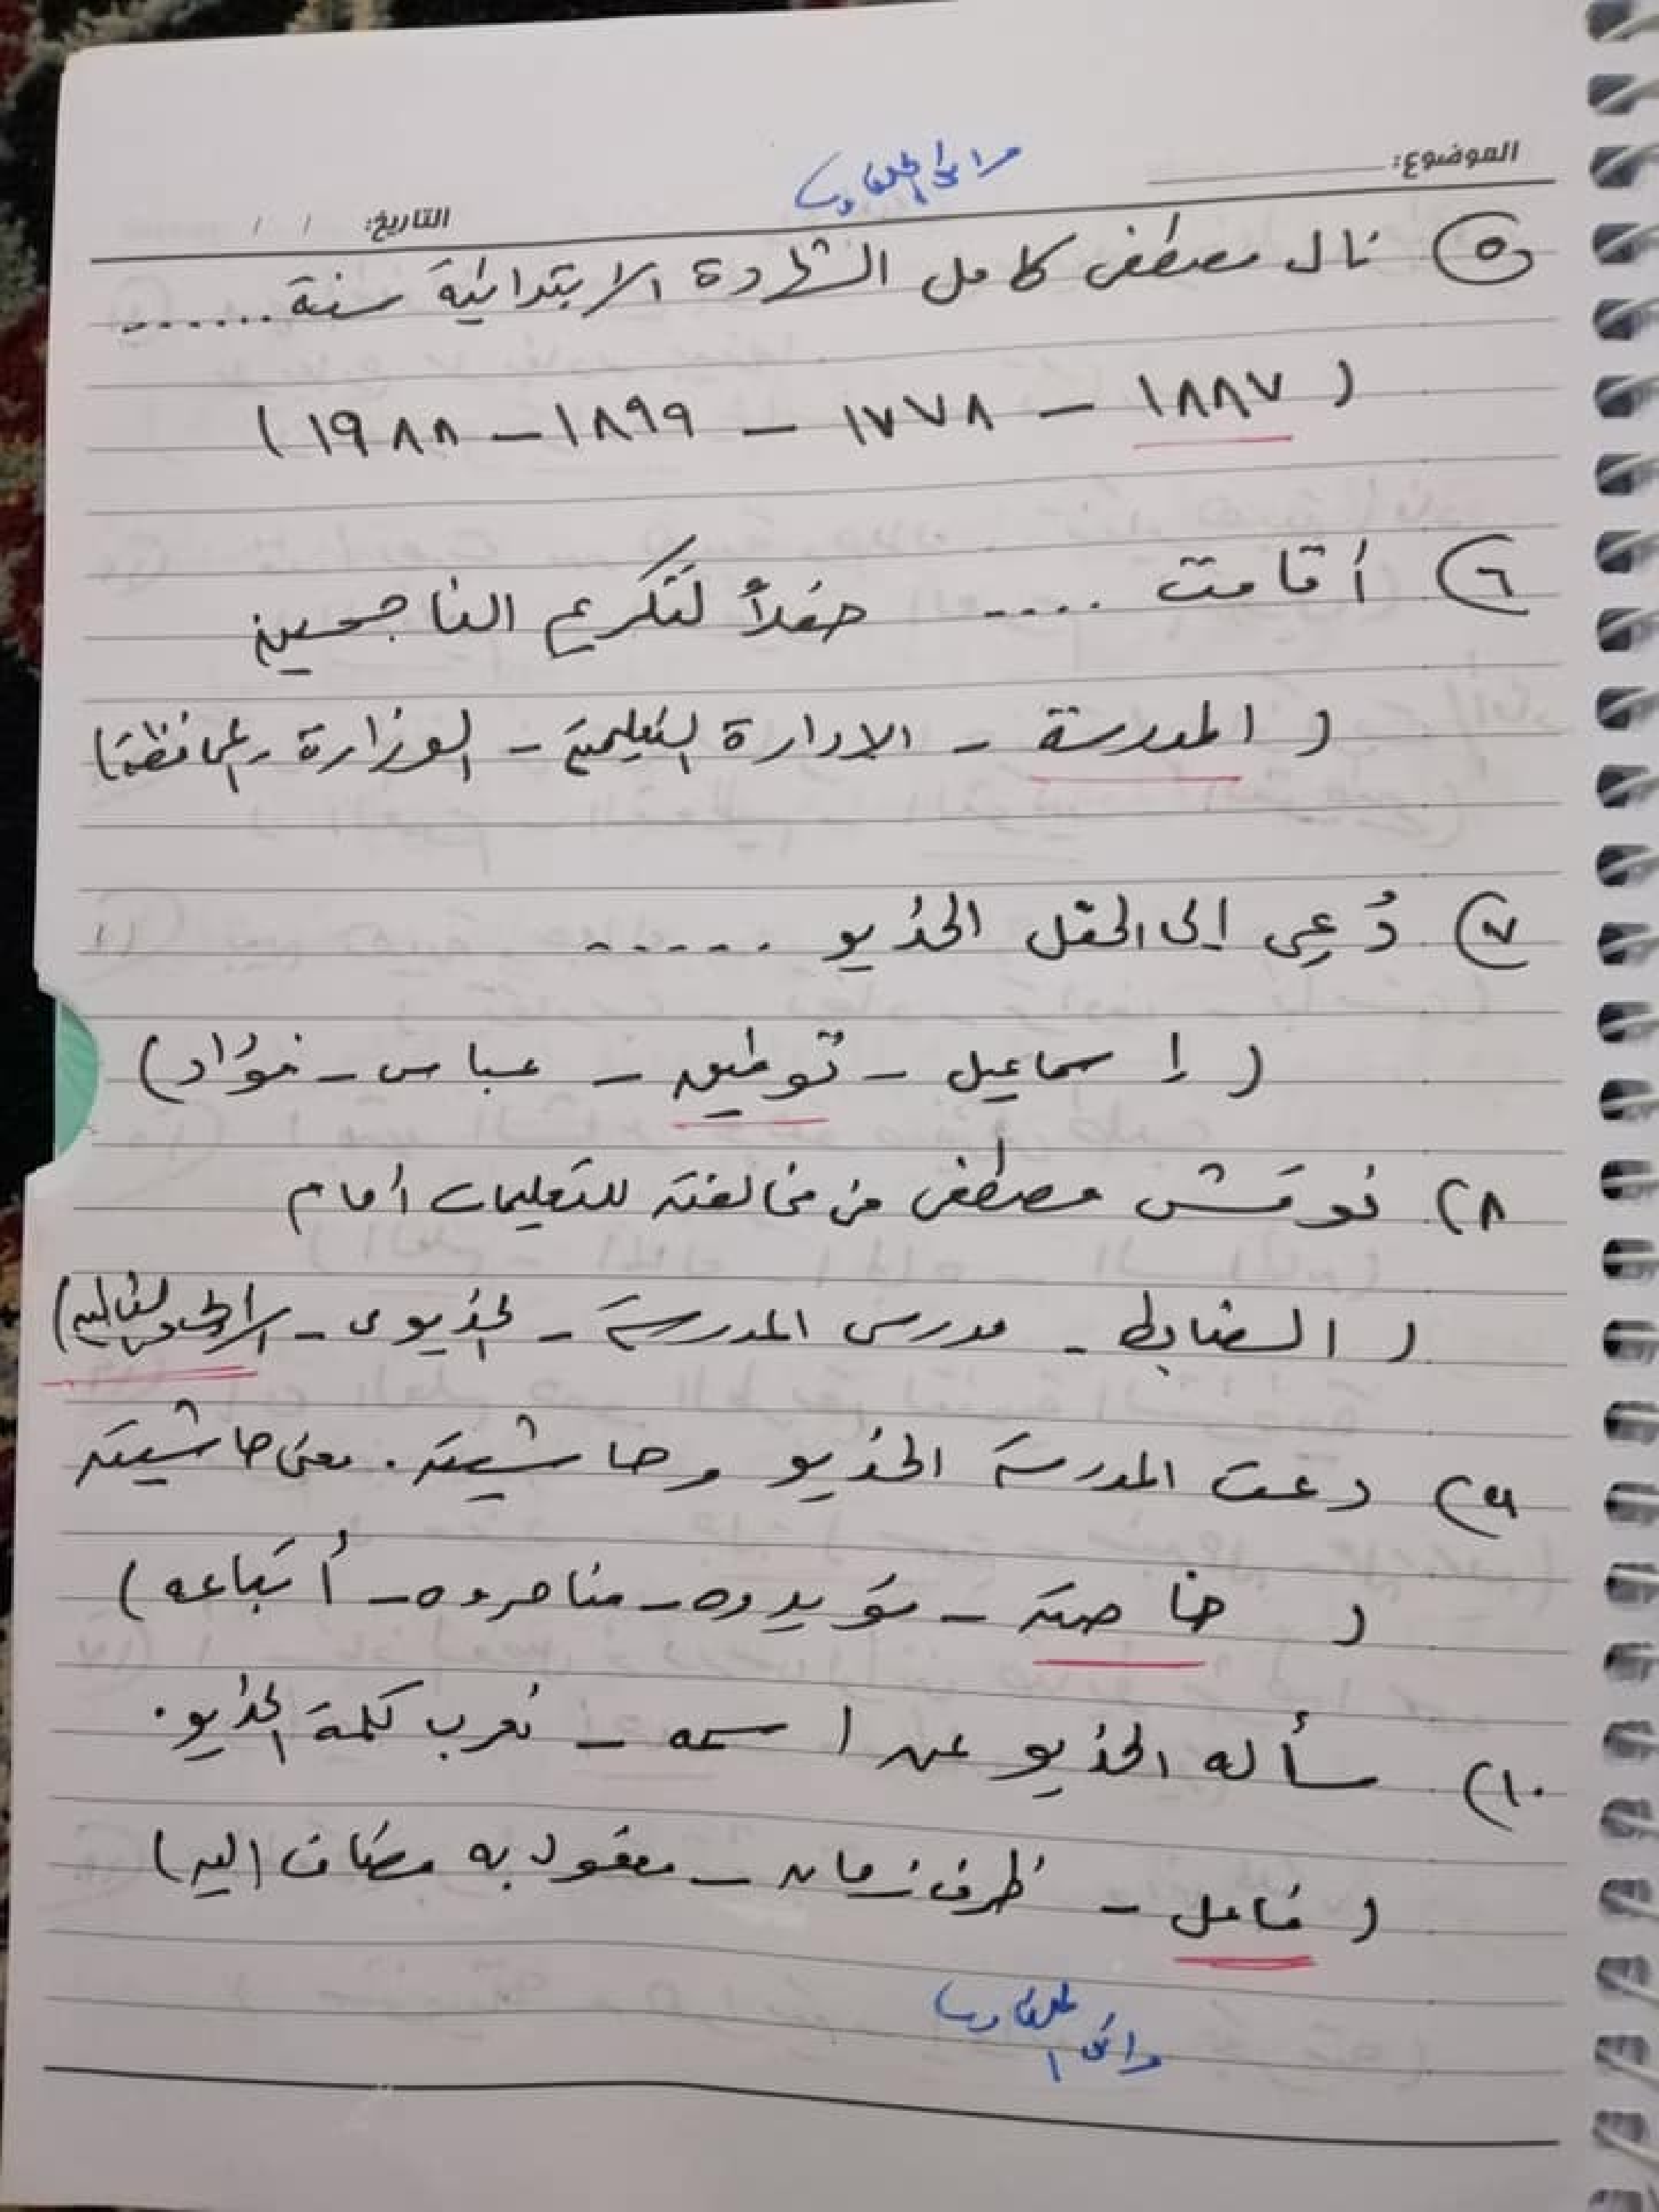 الموضوع:
التاريخ: / /
٥ نال مصطفى كامل الشهادة الابتدائية سنة .......
( ١٨٨٧ - ١٧٧٨ - ١٨٩٩ - ١٩٨٨ )
٦ أقامت .... حفلاً لتكريم الناجحين
( المدرسة - الإدارة التعليمية - الوزارة - المحافظة )
٧ دُعِى إلى الحفل الخديو ......
( إسماعيل - توفيق - عباس - فؤاد )
٨) نوقش مصطفى فى مخالفته للتعليمات أمام
( الضابط - مدرس المدرسة - الخديوى -
٩) دعت المدرسة الخديو وحاشيته . معنى حاشيته
( خاصته - مؤيدوه - مناصروه - أتباعه )
١٠) سأله الخديو عن اسمه - نعرب كلمة الخديو .
( فاعل - ظرف زمان - مفعول به مضاف إليه )